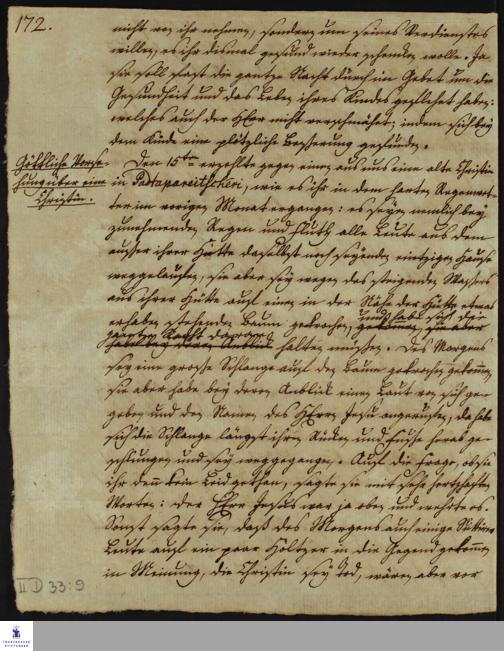 172.
nicht von ihr nehmen, sondern um seines Verdienstes
willen, es ihr dismal gesund wieder schenken wolle. Ja
sie soll fast die gantze Nacht durch im Gebet um die
Gesundheit und das Leben ihres Kindes geflehet haben:
welches auch der HErr nicht verschmähet; indem sich bey
dem Kinde eine plötzliche Besserung gefunden.
Göttliche Vorse-
hung über eine
Christin.
Den 15ten erzehlte gegen einen aus uns eine alte Christin
in Pattaparettscheri, wie es ihr in dem harten Regenwet-
ter im vorigen Monat ergangen: es seyen nemlich bey
zunehmenden Regen und Fluth alle Leute aus dem
ausser ihrer Hütte daselbst noch seyenden eintzigen Hause
weggelaufen, sie aber sey wegen des steigenden Wassers
aus ihrer Hütte auf einen in der Nähe der Hütte etwas
erhaben stehenden Baum gekrochen, und habe sich die
gantze Nacht darauf halten müssen. Des Morgens
sey eine grosse Schlange auf den Baum gekrochen gekommen
sie aber habe bey deren Anblick einen Laut von sich ge-
geben und den Namen des HErrn Jesu angerufen, da habe
sich die Schlange längst ihren Rücken und Füsse herab ge-
schlungen und sey weggegangen. Auf die Frage, ob sie
ihr denn kein Leid gethan, sagte sie mit sehr hertzhaften
Worten: der HErr Jesus war ja oben und wehrte es.
Sonst sagte sie, daß des Morgens auch einige
Leute auf ein paar Höltzer in die Gegend gekommen
in Meinung, die Christin sey tod, wären aber vor
II D 33:9
FRANCKESCHE
STIFTUNGEN